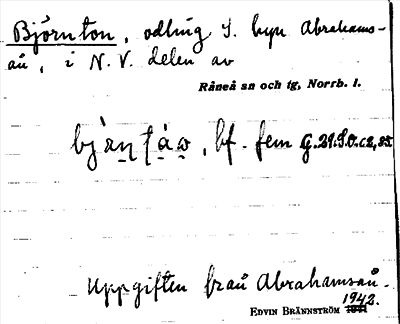 Björnton, odling S. byn Abrahams-
ån, i N.V. delen av
Råneå sn och tg, Norrb. l.
bf. fem G.21.S.o.c2,85
Uppgiften från Abrahamsån.
1942.
EDVIN BRÄNNSTRÖM 1941